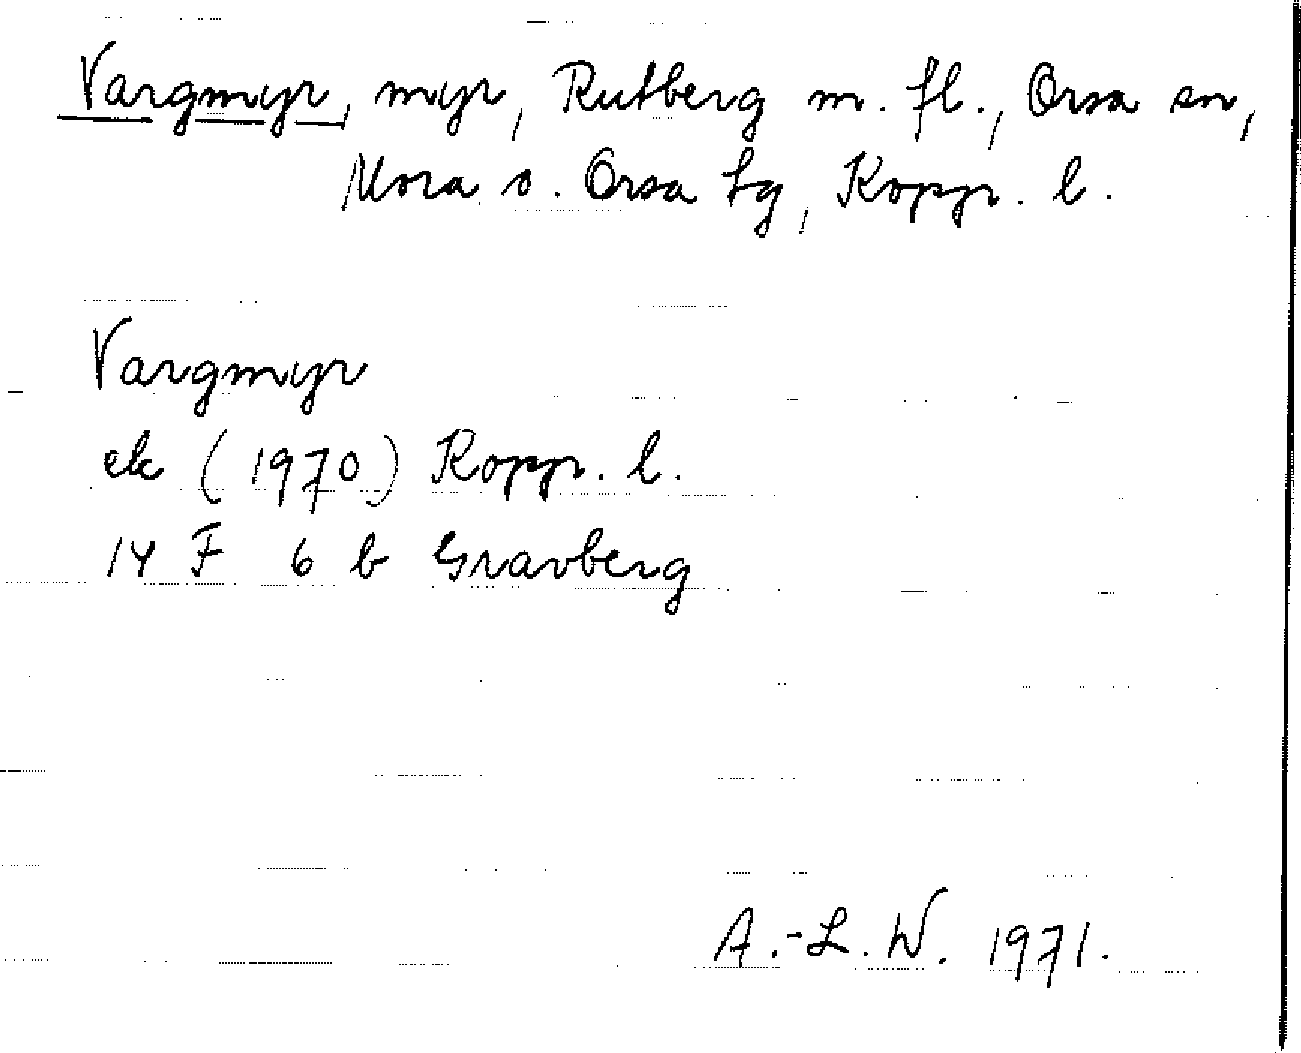 Vargmyr, myr, Rutberg m. fl., Orsa sn,
Mora o. Orsa tg, Kopp. l.
Vargmyr
ek (1970) Kopp. l.
14 F 6 b Gravberg
A.-L. W. 1971.